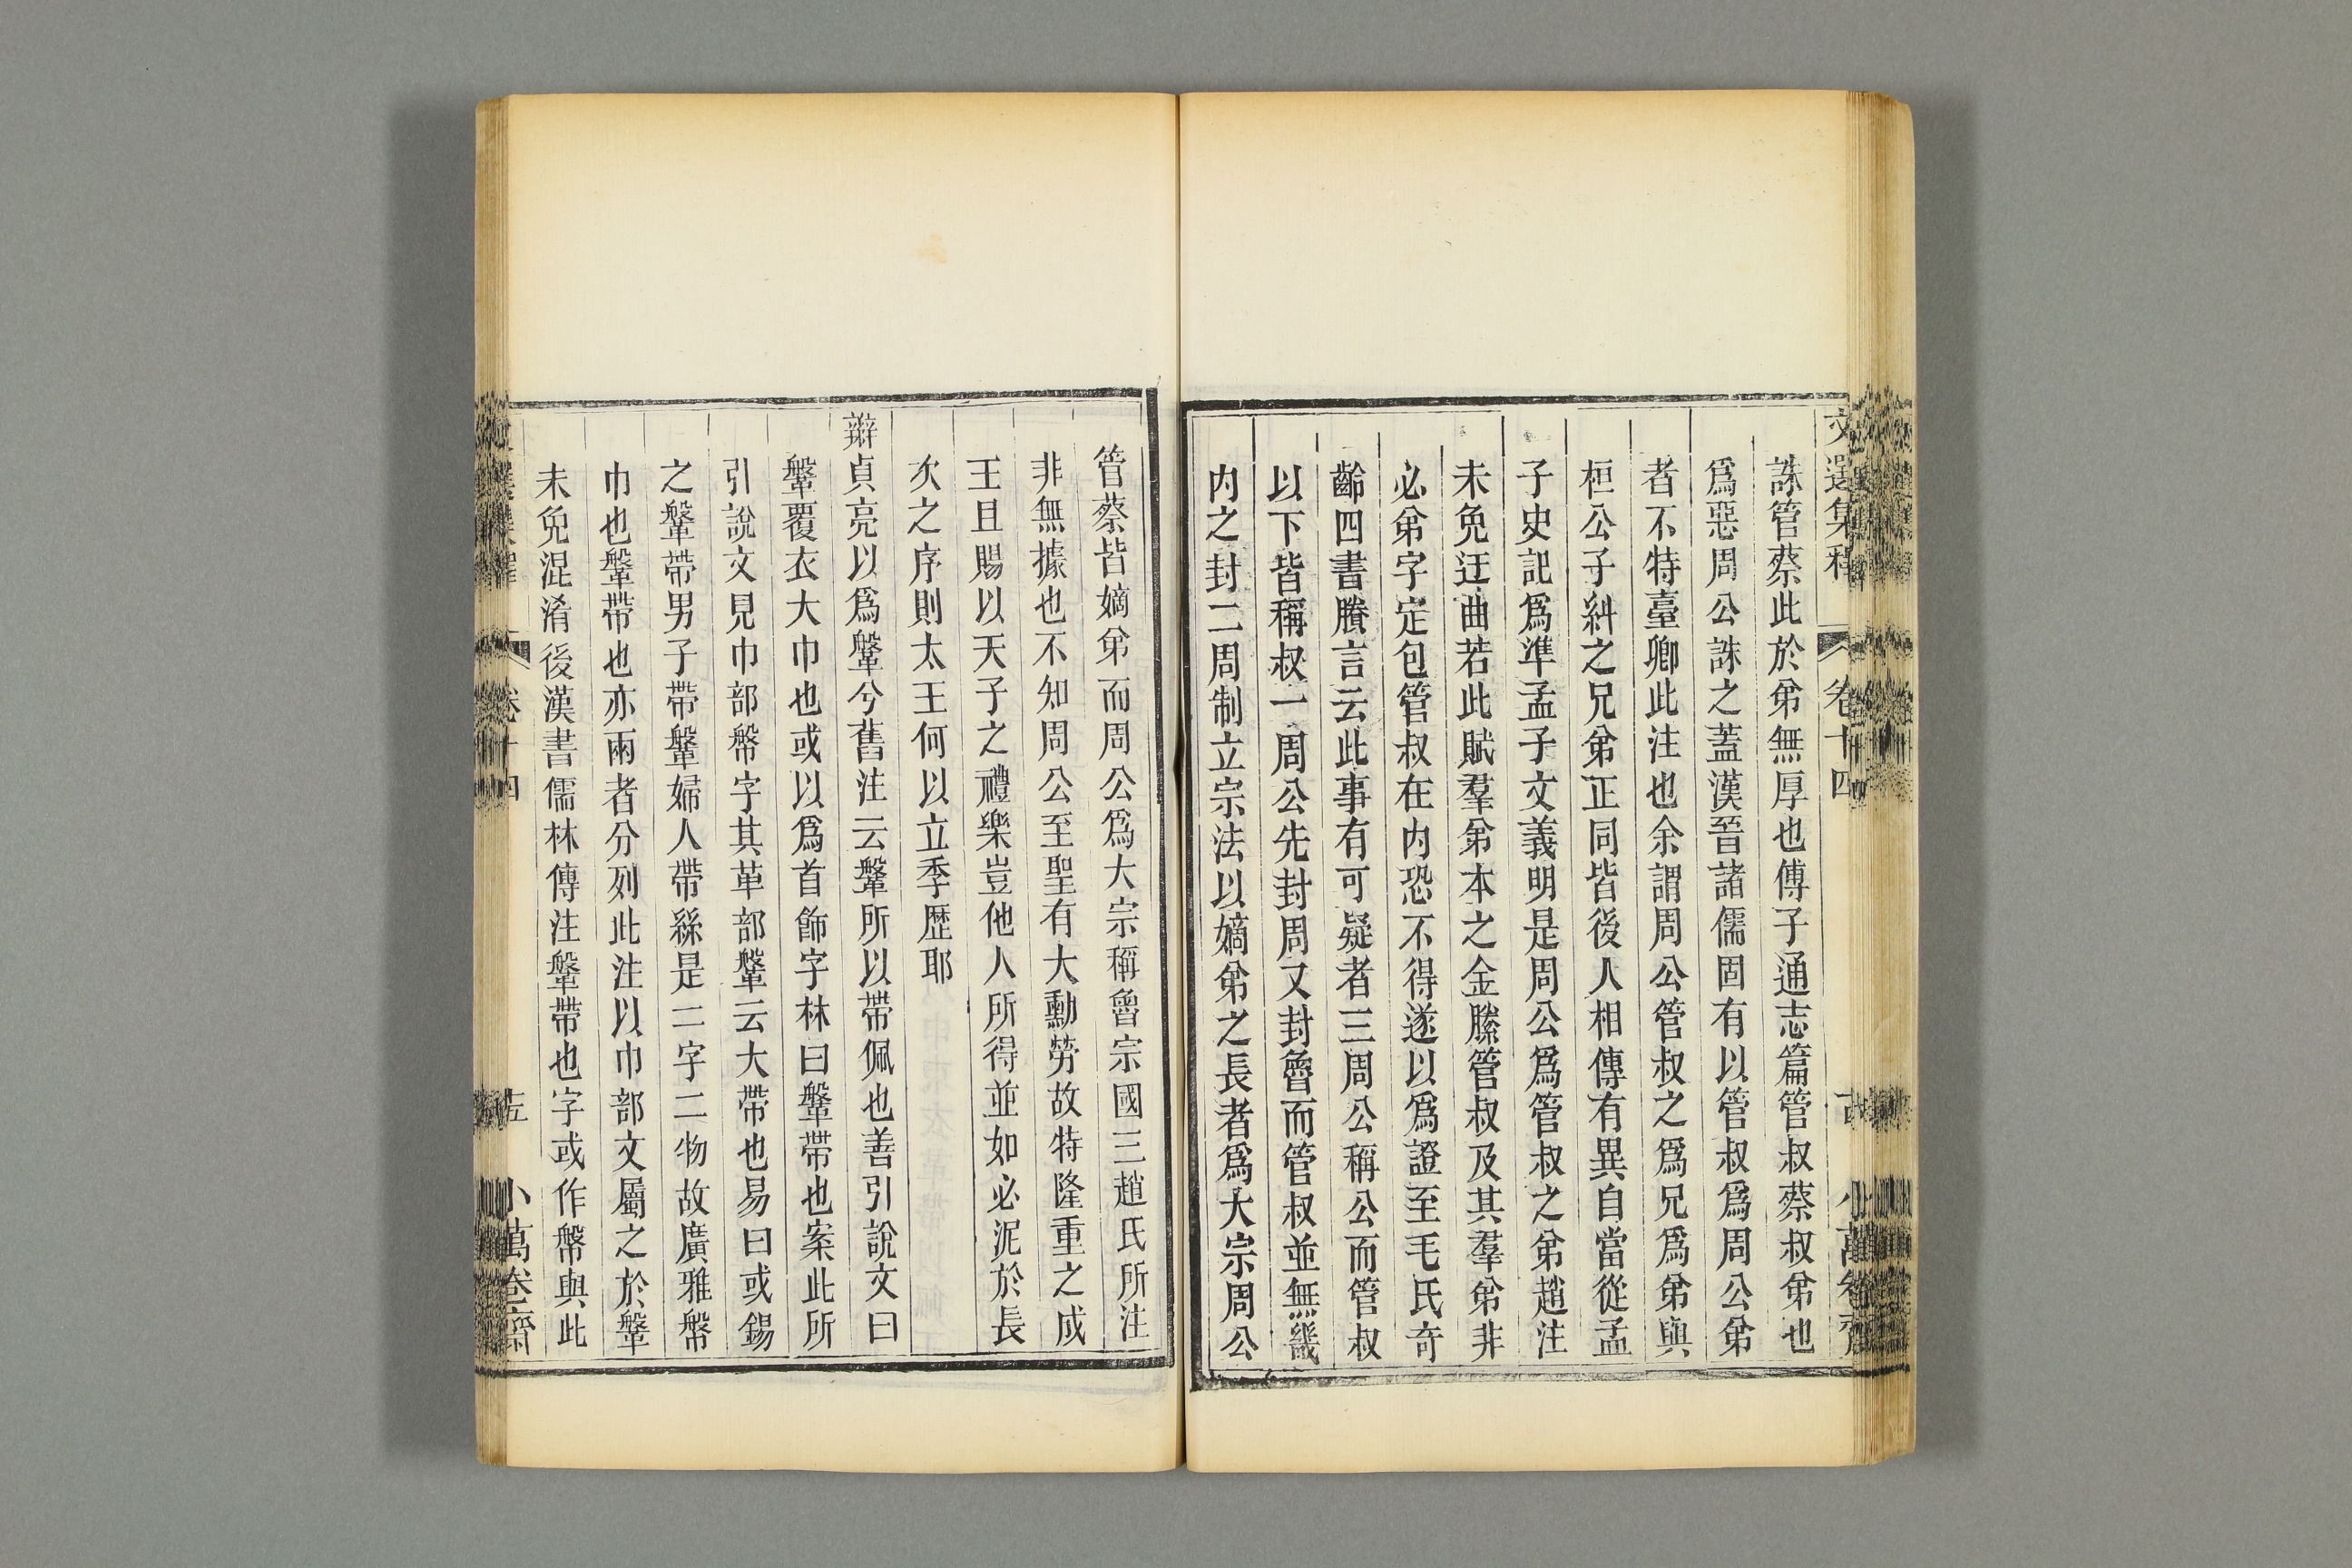 文選集釋 卷十四 古 小萬卷齋
誅管蔡此於弟無厚也傅子通志篇管叔蔡叔弟也
爲惡周公誅之蓋漢晉諸儒固有以管叔爲周公弟
者不特臺卿此注也余謂周公管叔之爲兄爲弟與
桓公子糾之兄弟正同皆後人相傳有異自當從孟
子史記爲準孟子文義明是周公爲管叔之弟趙注
未免迂曲若此賦羣弟本之金縢管叔及其羣弟非
必弟字定包管叔在内恐不得遂以爲證至毛氏奇
齡四書賸言云此事有可疑者三周公稱公而管叔
以下皆稱叔一周公先封周又封魯而管叔並無畿
内之封二周制立宗法以嫡弟之長者爲大宗周公
管蔡皆嫡弟而周公爲大宗稱魯宗國三趙氏所注
非無據也不知周公至聖有大勳勞故特隆重之成
王且賜以天子之禮樂豈他人所得並如必泥於長
次之序則太王何以立季歷耶
辮貞亮以爲鞶兮舊注云鞶所以帶佩也善引說文曰
鞶覆衣大巾也或以爲首飾字林曰鞶帶也案此所
引說文見巾部幋字其革部鞶云大帶也易曰或錫
之鞶帶男子帶鞶婦人帶絲是二字二物故廣雅幋
巾也鞶帶也亦兩者分列此注以巾部文屬之於鞶
未免混淆後漢書儒林傳注鞶帶也字或作幋與此
卷十四 小萬卷齋